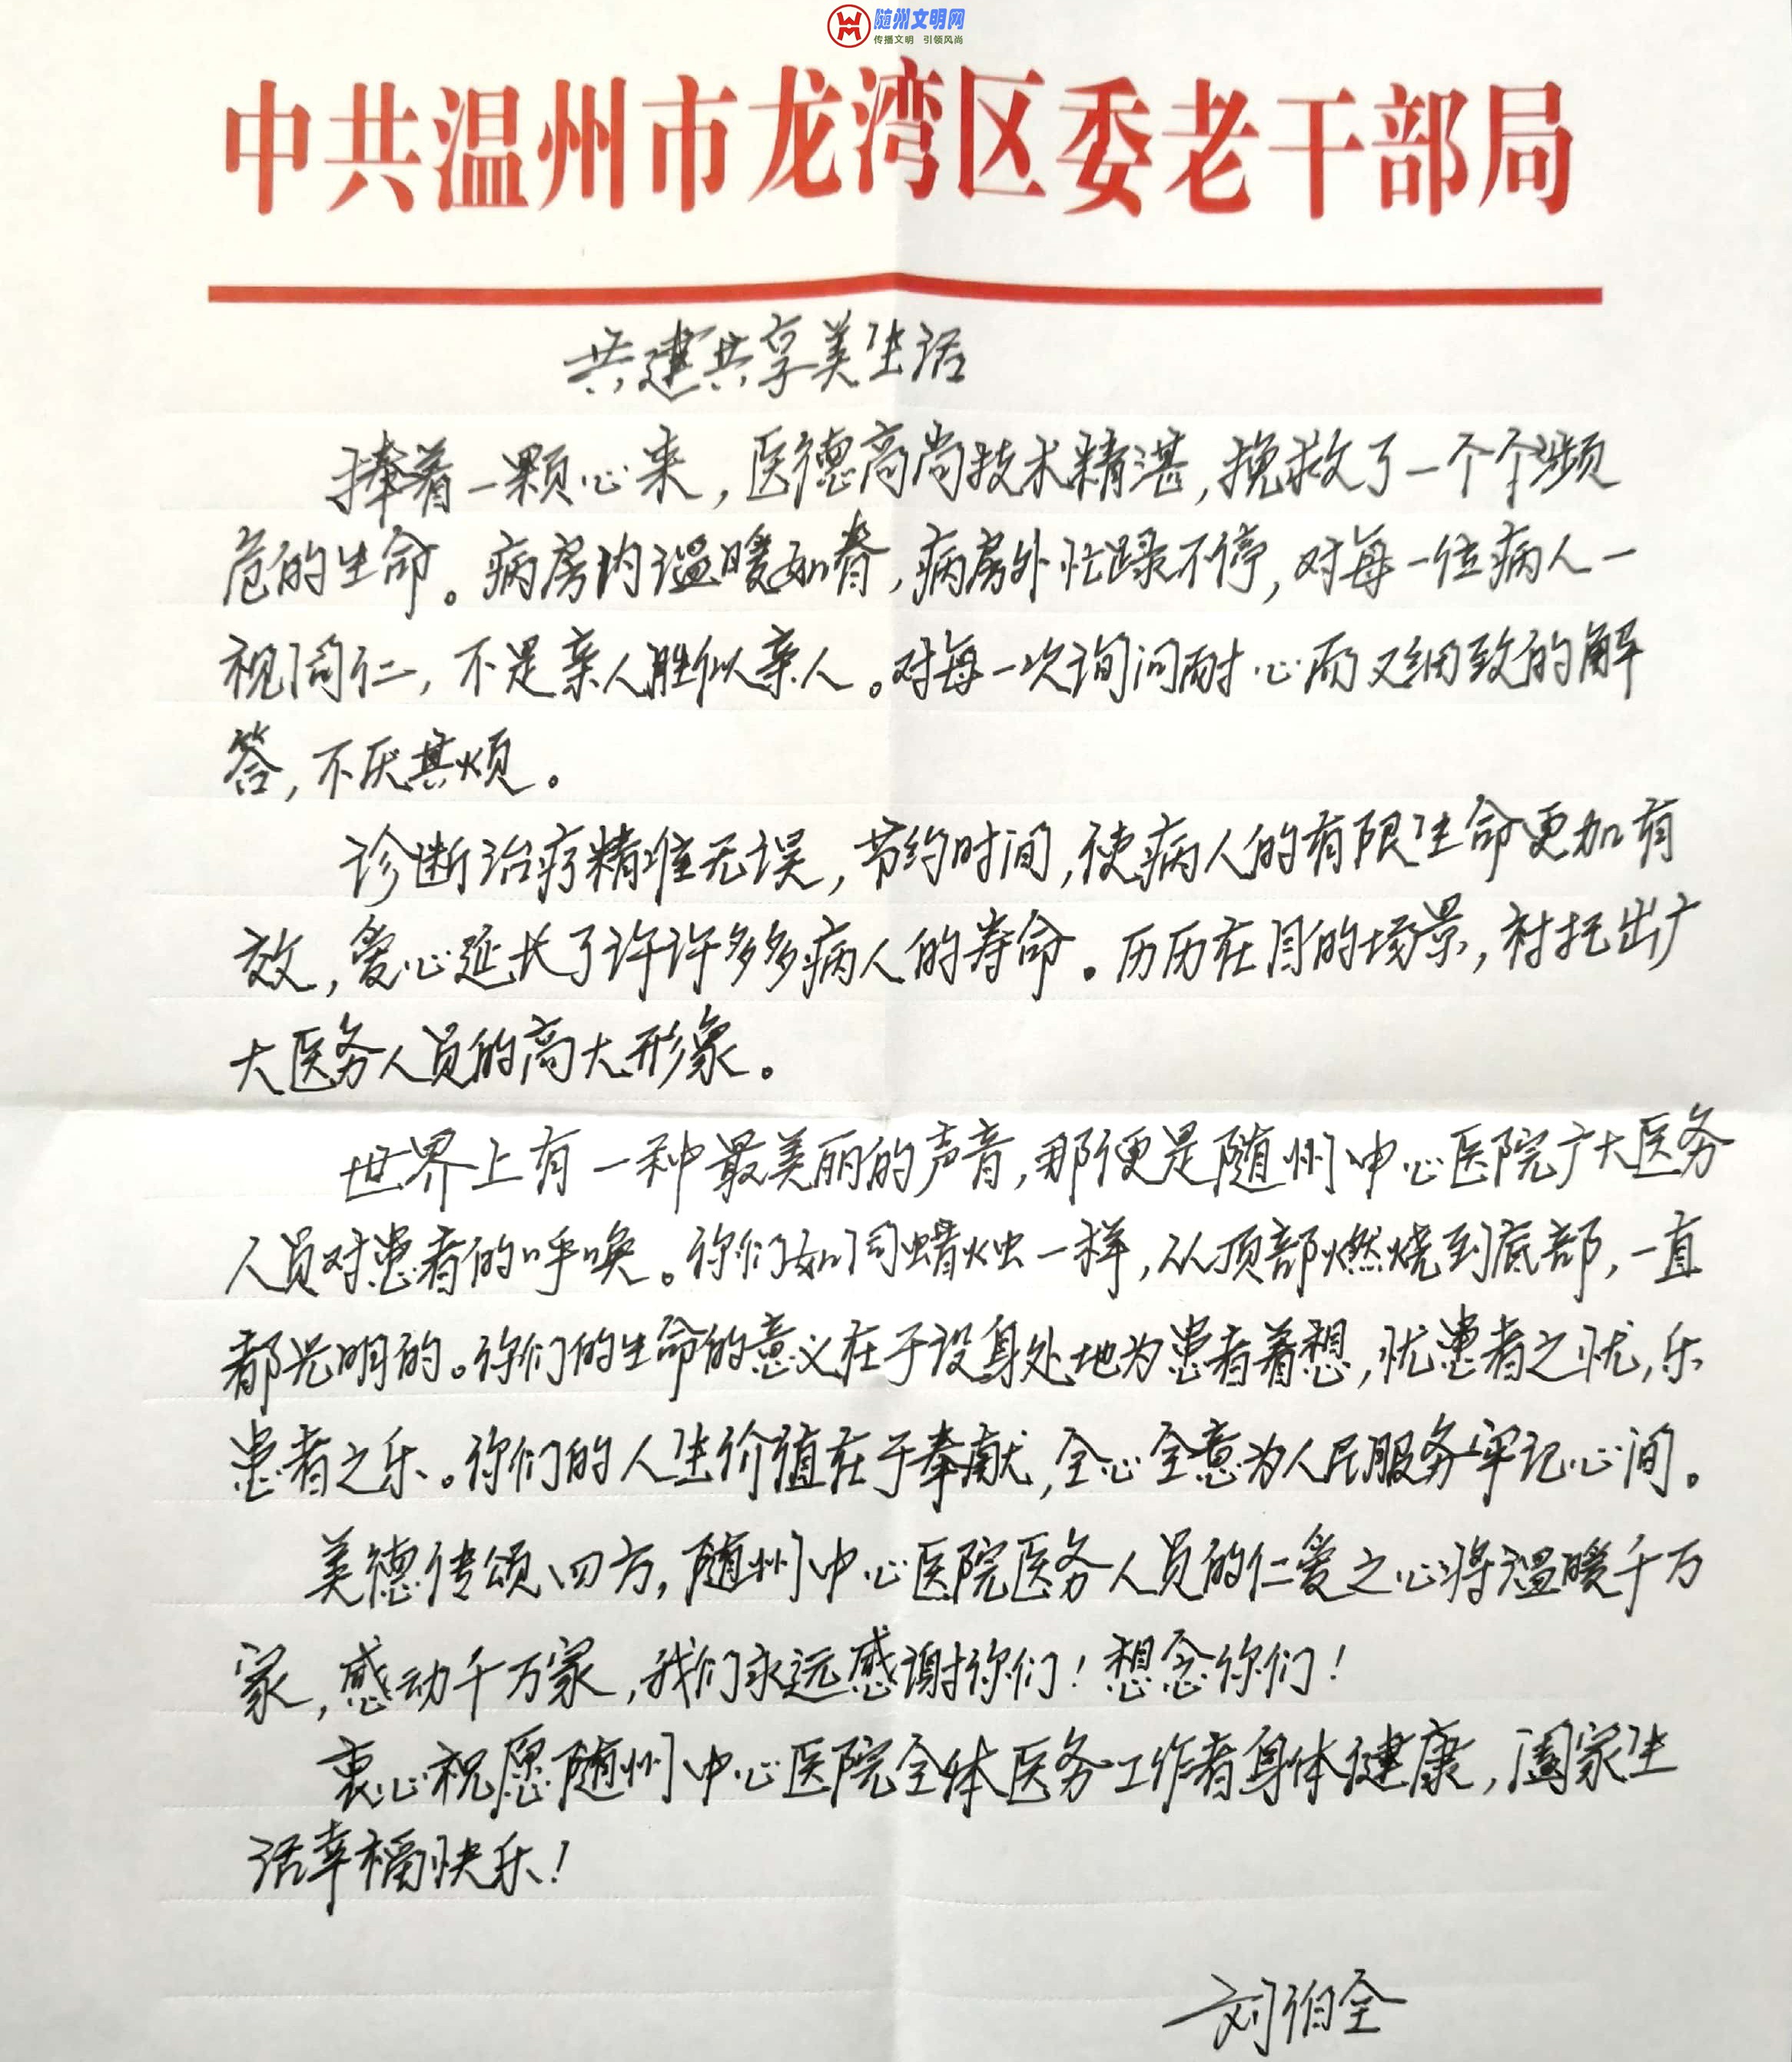 随州文明网
传播文明 引领风尚
中共温州市龙湾区委老干部局
共建共享美生活
捧着一颗心来，医德高尚技术精湛，挽救了一个个濒
危的生命。病房内温暖如春，病房外忙碌不停，对每一位病人一
视同仁，不是亲人胜似亲人。对每一次询问耐心而又细致的解
答，不厌其烦。
诊断治疗精准无误，节约时间，使病人的有限生命更加有
效，爱心延长了许许多多病人的寿命。历历在目的场景，衬托出广
大医务人员的高大形象。
世界上有一种最美丽的声音，那便是随州中心医院广大医务
人员对患者的呼唤。你们如同蜡烛一样，从顶部燃烧到底部，一直
都光明的。你们的生命的意义在于设身处地为患者着想，忧患者之忧，乐
患者之乐。你们的人生价值在于奉献，全心全意为人民服务牢记心间。
美德传颂四方，随州中心医院医务人员的仁爱之心将温暖千万
家，感动千万家，我们永远感谢你们！想念你们！
衷心祝愿随州中心医院全体医务工作者身体健康，阖家生
活幸福快乐！
刘伯全